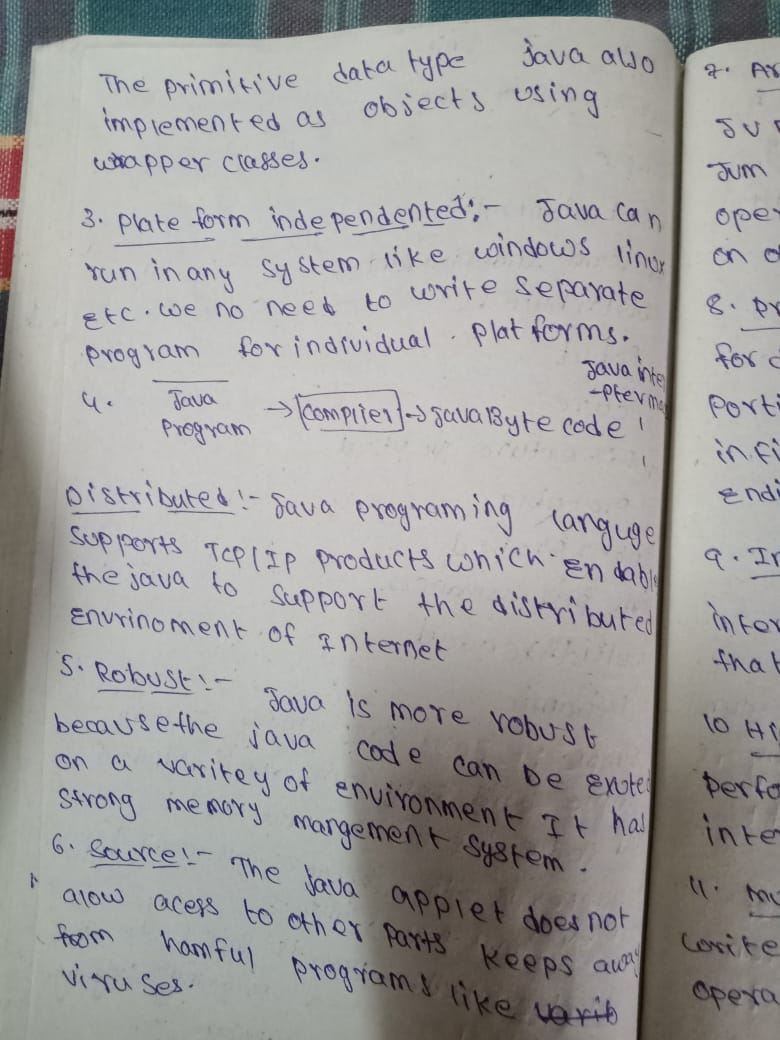 The primitive data type Java also
implemented as objects using
wrapper classes.
3. plate form independented:- Java can
run in any system like windows linux
etc. we no need to write separate
program for individual. platforms.
4. Java Program → Complier → Java Byte code
Java inte
-pter ma
Distributed:- Java programing languge
supports TCP/IP products which endabl
the java to support the distributed
Envrinoment of Internet
5. Robust:- Java is more robust
because the java code can be exute
on a varitey of environment It has
strong memory mangement system.
6. Source:- The Java applet does not
alow acess to other parts keeps away
from hamful programs like varib
viruses.
7. Ar
Jum
oper
on o
8. pr
for c
porti
in fi
endi
9. In
inter
that
10 Hi
perfo
inte
11. mu
write
opera